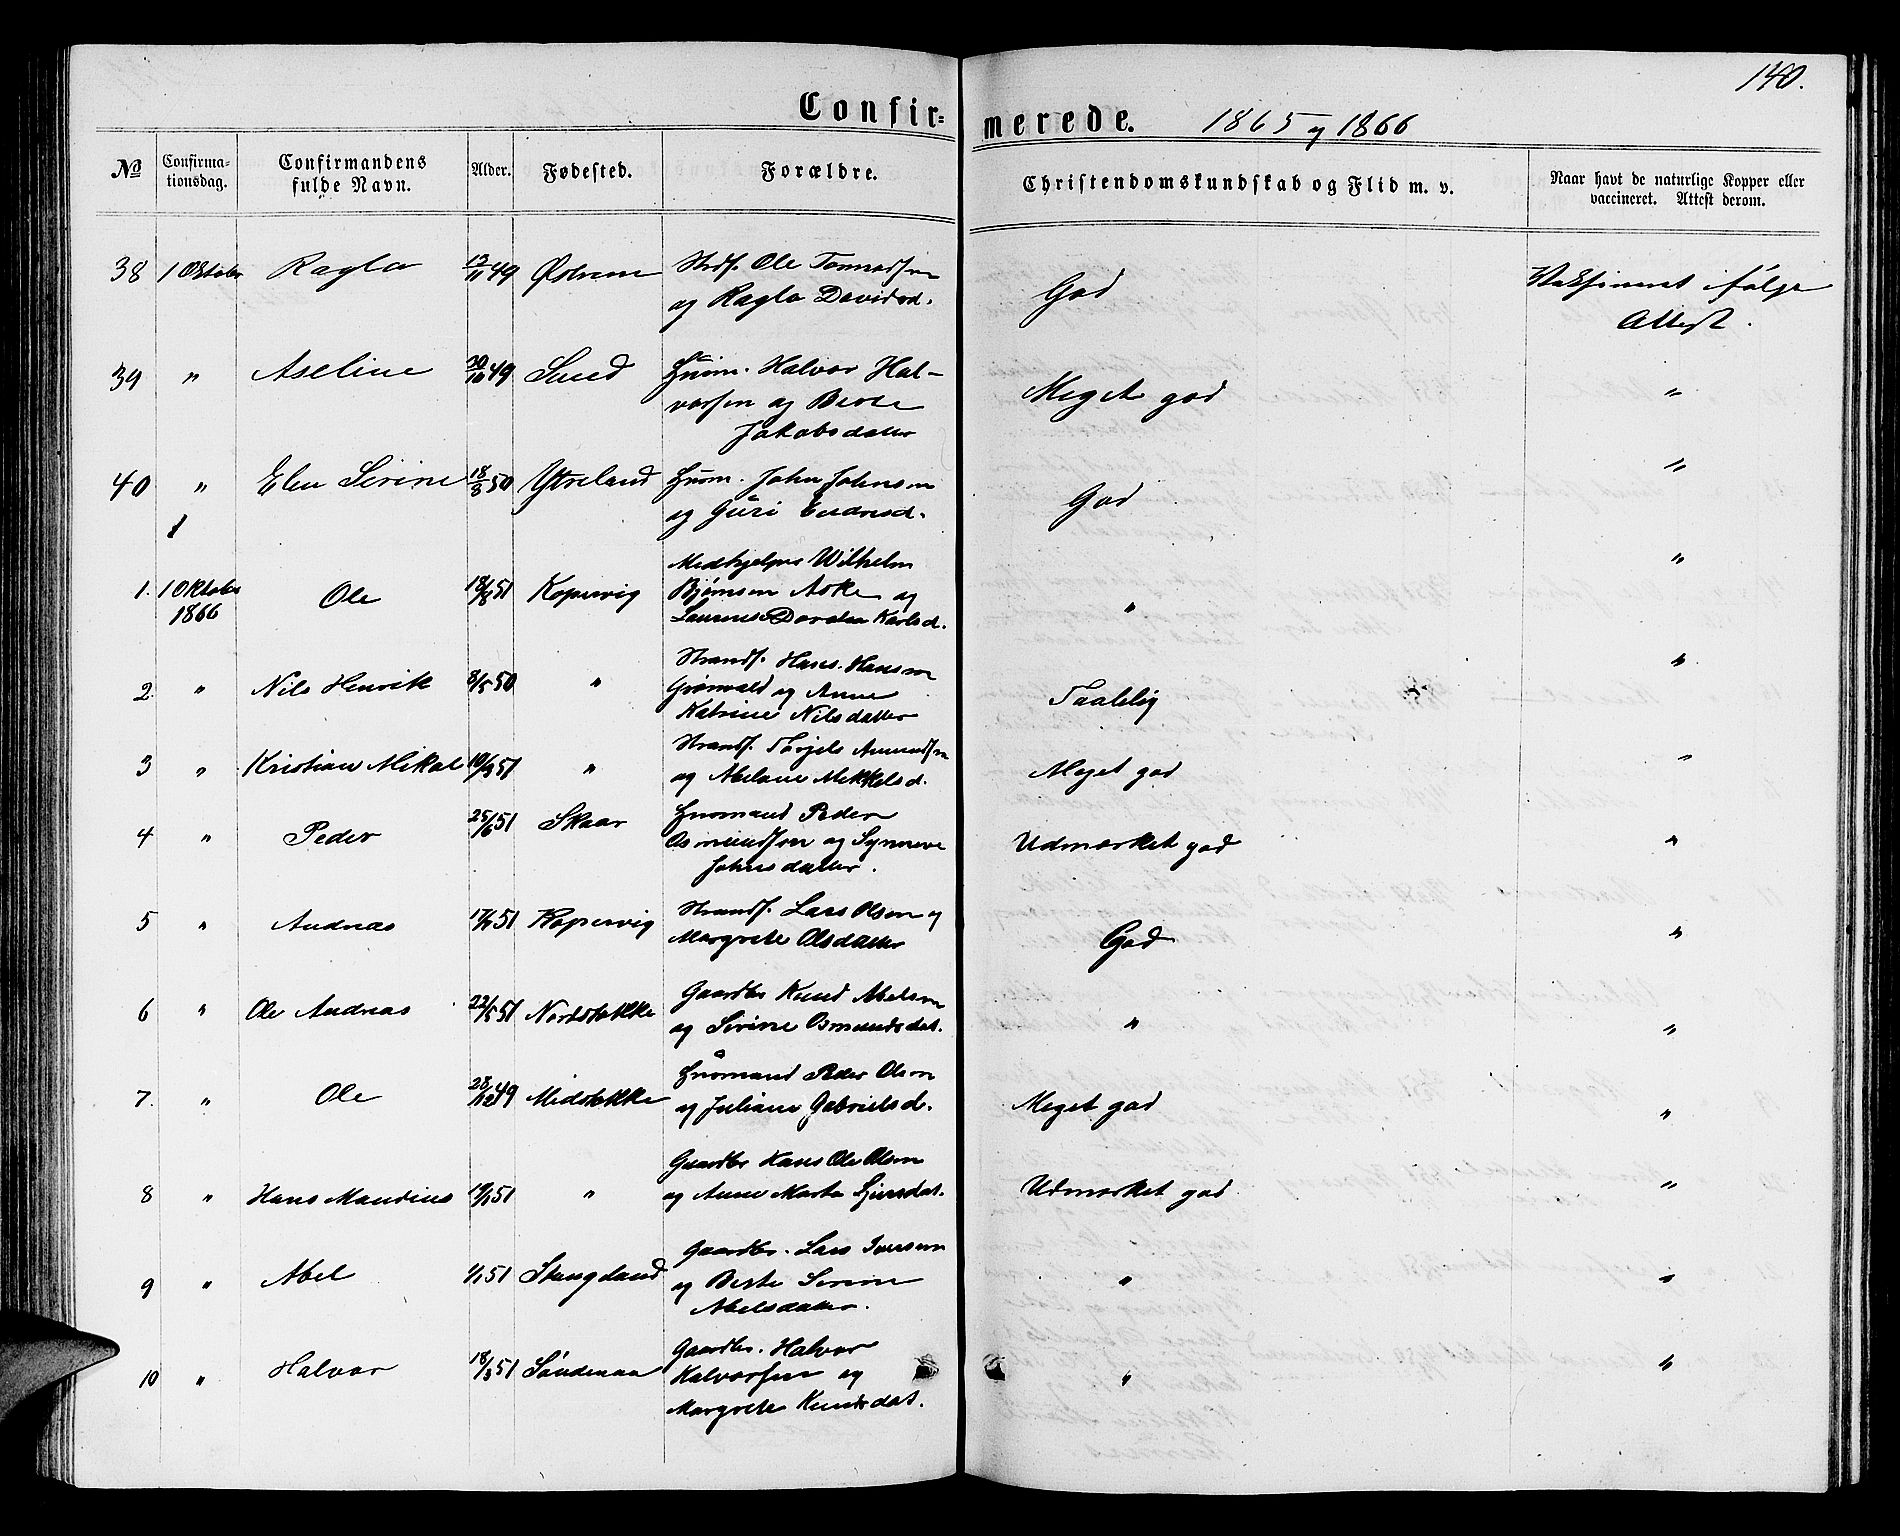 140.
Confir= merede. 1865 og 1866
No
Confirma-
tionsdag.
Confirmandens
fulde Navn.
Alder.
Fødested.
Forældre.
Christendomskundskab og Flid m. v.
Naar havt de naturlige Kopper eller
vaccineret. Attest derom.
38 1 Oktober Ragla 12/11 49 Østrem Strds. Ole Tonnesen
og Ragla Davidsd.
God
Vaksineret ifølge
Attest.
39 " Aseline 30/10 49 Sund Huusm. Halvor Hal-
vorsen og Berte
Jakobsdatter
Meget god "
40 " Elen Serine 18/3 50 Ytreland Husm. John Johnsen
og Guri Endresd.
God "
1. 1 Oktober
1866
Ole 18/8 51 Kopervig Medhjelper Wilhelm
Bjørnsen Aske og
Dorotea Karlsd.
" "
2. " Nils Henrik 8/5 50 " Strands. Hans Hansen
Grønvald og Anne
Katrine Nilsdatter
Taalelig "
3 " Kristian Mikal 10/9 51 " Strands. Torjels Amundsen
og Abelone Mikkelsd.
Meget god "
4 " Peder 25/6 51 Skaar Husmand Peder
Osmundsen og Synneve
Johnsdatter.
Udmærket god "
5 " Andreas 17/7 51 Kopervig Strands. Lars Olsen og
Margrete Olsdatter
God "
6 " Ole Andreas 22/5 51 Nordstokke Gaardbr Knud Abelsen
og Serine Osmundsdat.
" "
7. " Ole 28/12 49 Midstokke Husmand Peder Olsen
og Juliane Gabrielsd.
Meget god "
8 " Hans Mandius 19/1 51 " Gaardbr Hans Ole Olsen
og Anne Marta
Udmærket god "
9 " Abel 1/1 51 Stangeland Gaardbr. Lars Iversen
og Berte Serine
Abelsdatter.
" "
10 " Halvor 18/3 51 Søndenaa Gaardbr. Halvor
Halvorsen og
Margrete Knudsdat.
" "